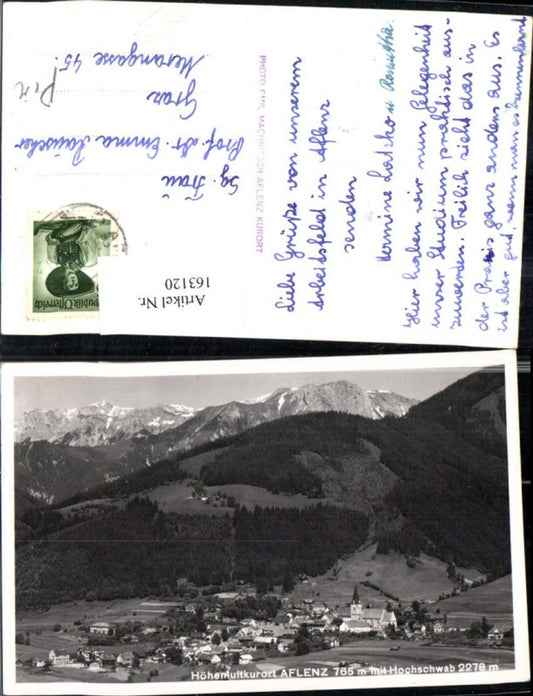 Sg. Frau
Prof. Dr. Emma Rauscher
Graz
Merangasse 45.
Republik Österreich
Artikel Nr.
163120
PHOTO EMIL MACHNITSCH AFLENZ KURORT
Liebe Grüße von unserem
Arbeitsfeld in Aflenz
senden
Hermine Latzko u
Hier haben wir nun Gelegenheit
unser Studium praktisch aus-
zuwerten. Freilich sieht das in
der Praxis ganz anders aus. Es
ist aber gut, wenn man es kennenlernt
Höhenluftkurort AFLENZ 765 m mit Hochschwab 2278 m